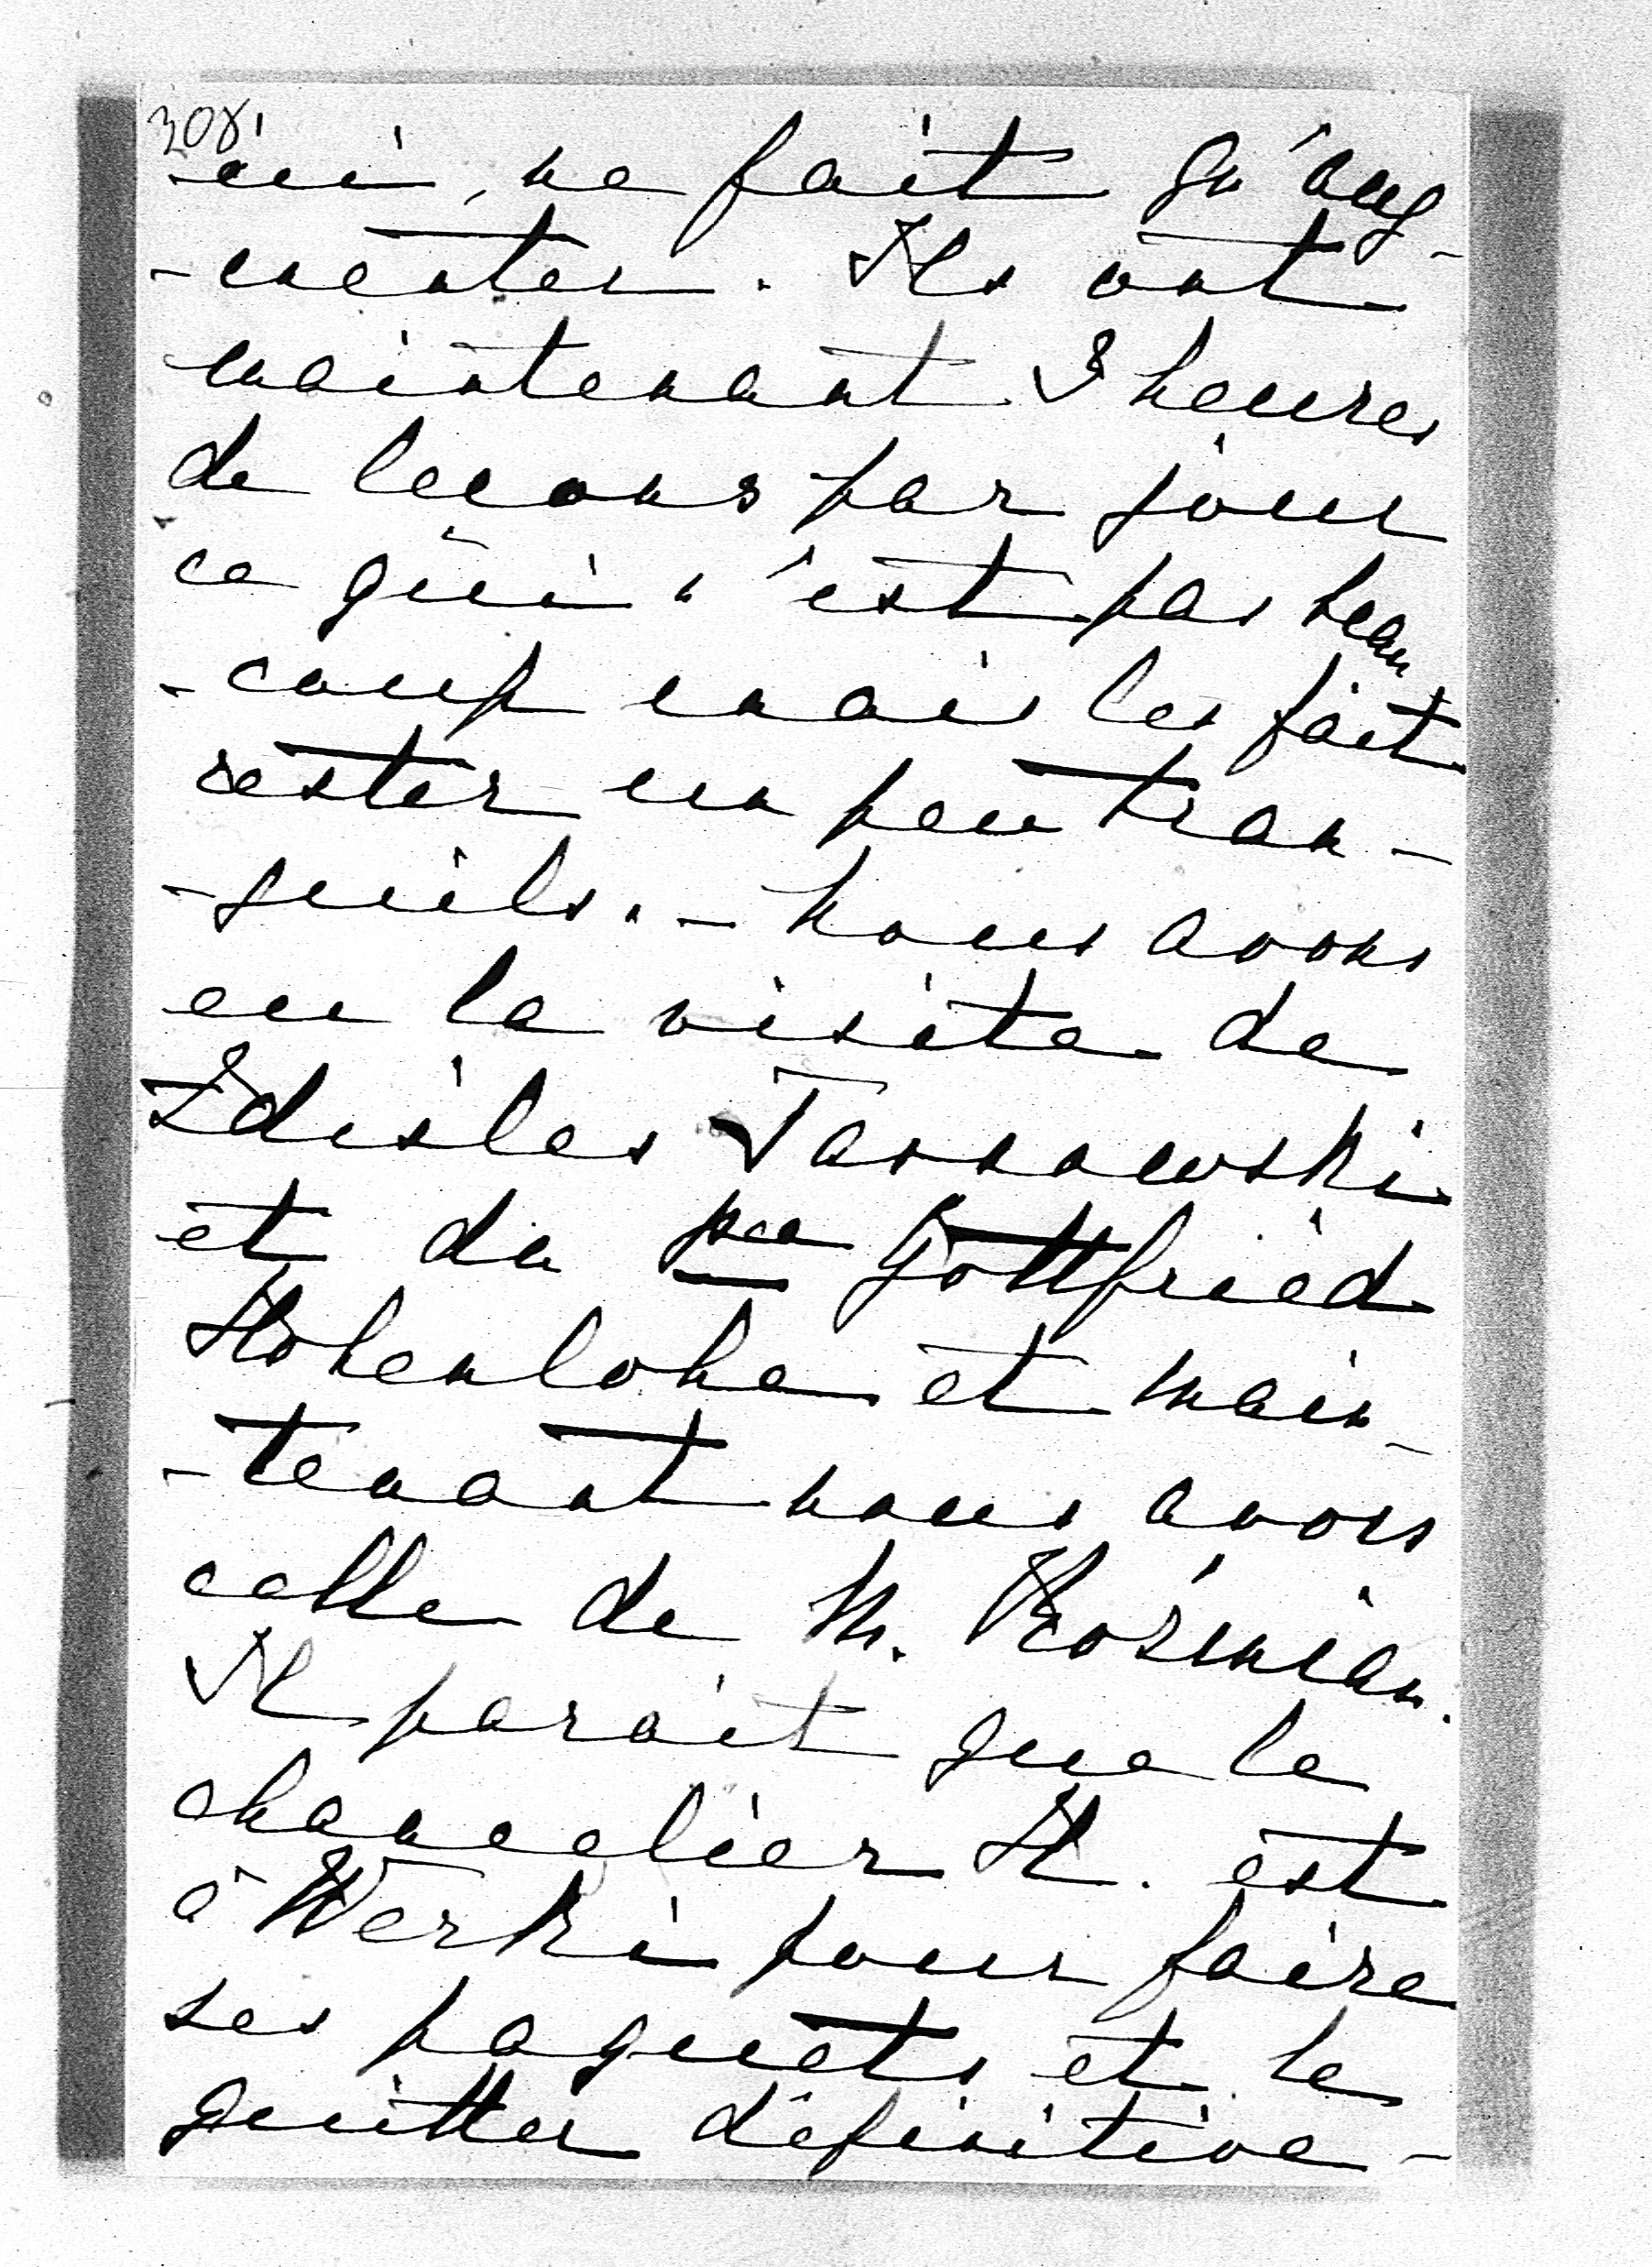 308
ici, ne fait qu'aug-
-menter. Ils ont
maintenant 3 heures
de leçons par jour
ce qui n'est pas beau
-coup mais les fait
rester un peu tran-
-quils. - Nous avons
eu la visite de
Zdislas Tarnowski
et du pce Gottfried
Hohenlohe et main-
-tenant nous avons
celle de M. Koźmian.
Il parait que le
chancelier H. est
à Werki pour faire
ses paquets et le
quitter définitive-